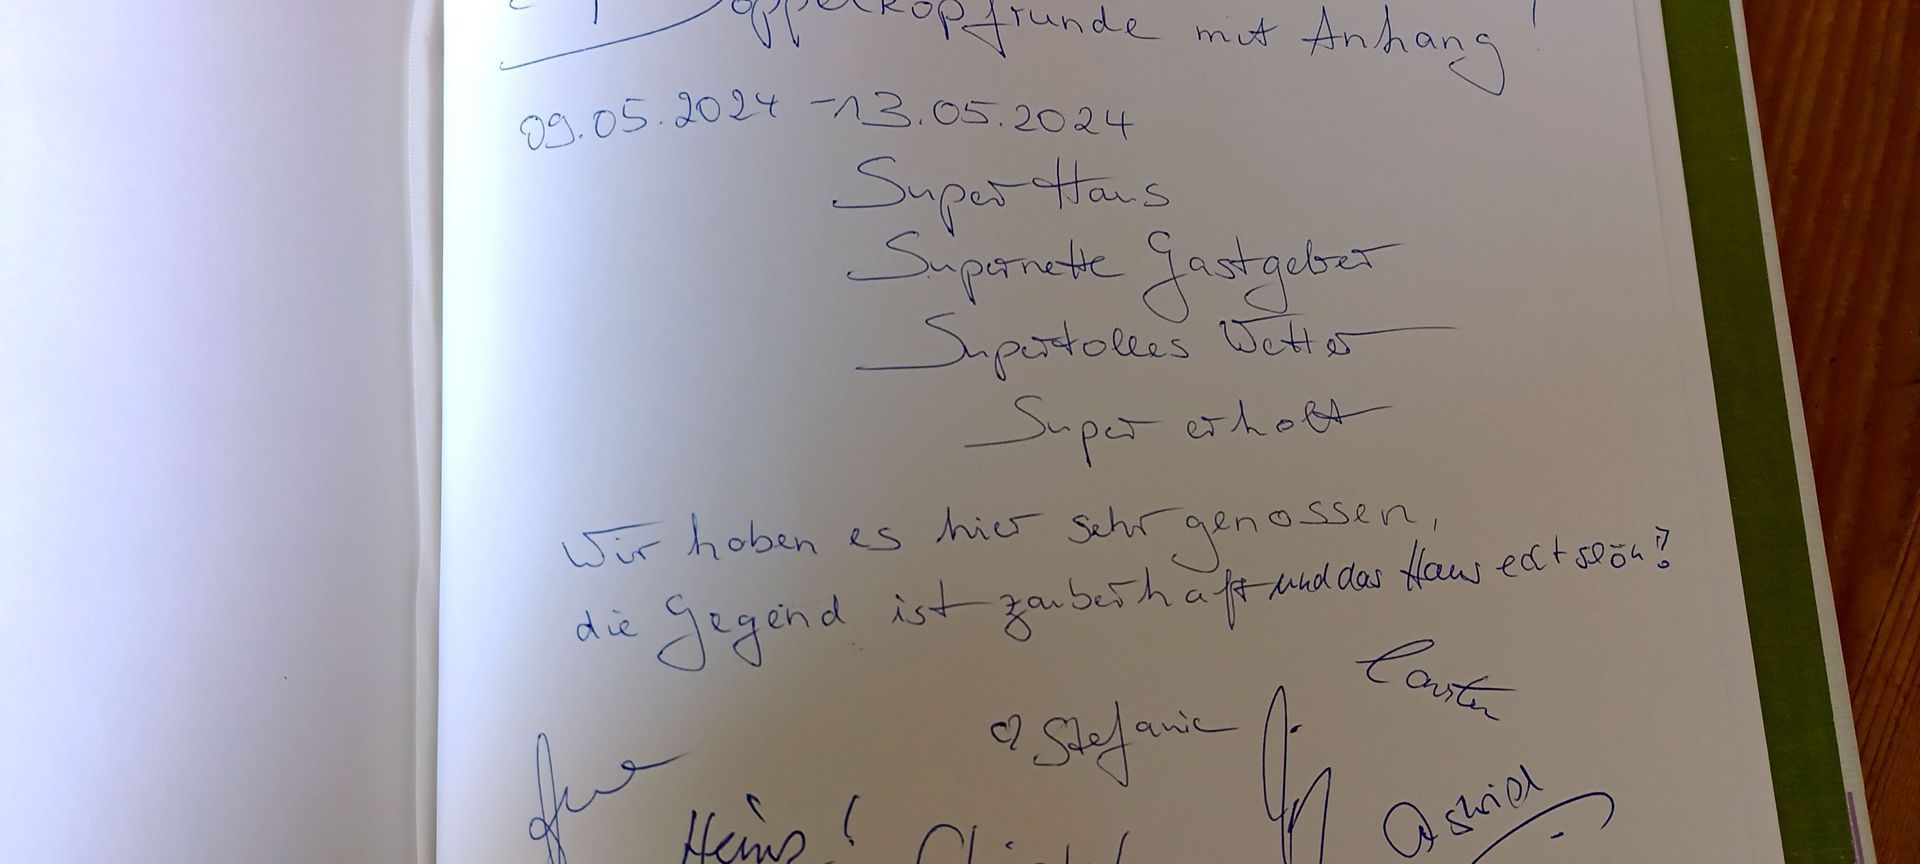 Doppelkopfrunde mit Anhang!
09.05.2024 - 13.05.2024
Super Haus
Supernette Gastgeber
Supertolles Wetter
Super erholt
Wir haben es hier sehr genossen,
die Gegend ist zauberhaft und das Haus echt schön!
Carsten
Stefanie
Astrid
Heins!